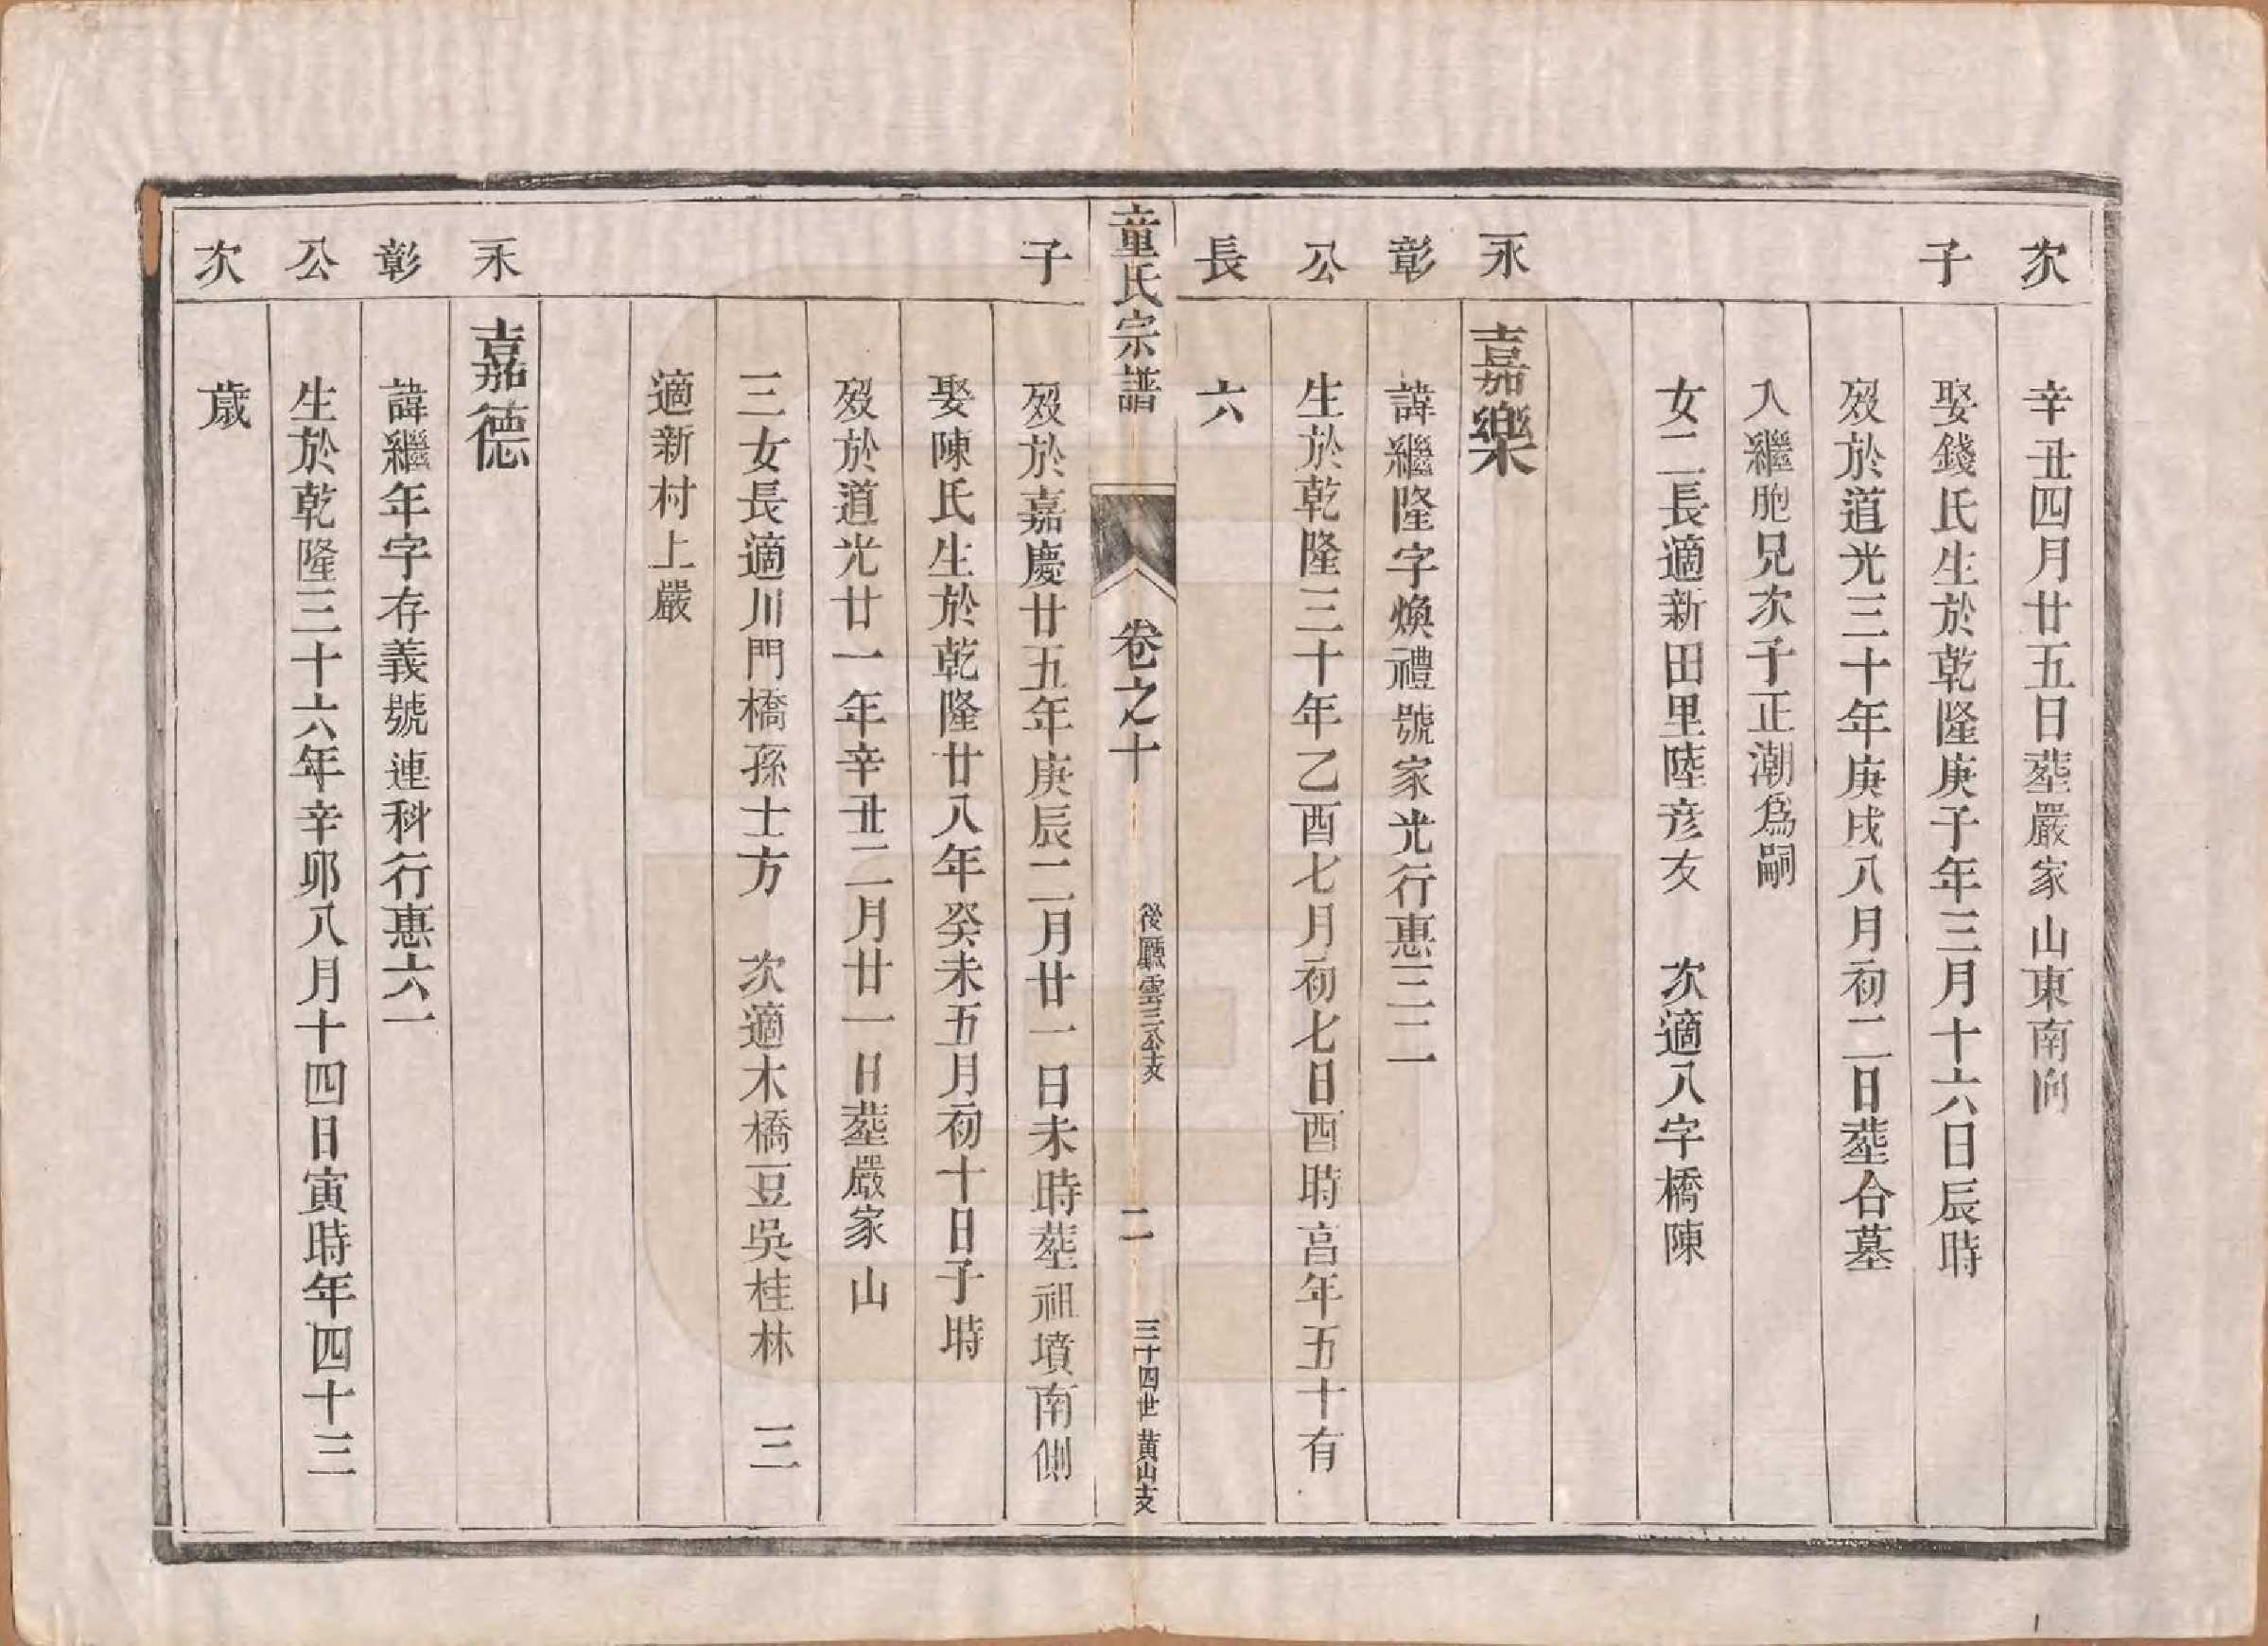 次
辛丑四月廿五日塟嚴家山東南向
子
娶錢氏生於乾隆庚子年三月十六日辰時
歿於道光三十年庚戌八月初二日塟合墓
入繼胞兄次子正潮爲嗣
女二長適新田里陸彦友　次適八字橋陳
永
嘉樂
彰
諱繼隆字煥禮號家光行惠三二
公
生於乾隆三十年乙酉七月初七日酉時亯年五十有
長
六
童氏宗譜
卷之十
後廳雲三公支
二
三十四世
黄山支
子
歿於嘉慶廿五年庚辰二月廿一日未時塟祖墳南側
娶陳氏生於乾隆廿八年癸未五月初十日子時
歿於道光廿一年辛丑二月廿一日塟嚴家山
三女長適川門橋孫士方　次適木橋豆吳桂林　三
適新村上嚴
永
嘉德
彰
諱繼年字存義號連科行惠六一
公
生於乾隆三十六年辛卯八月十四日寅時年四十三
次
歲